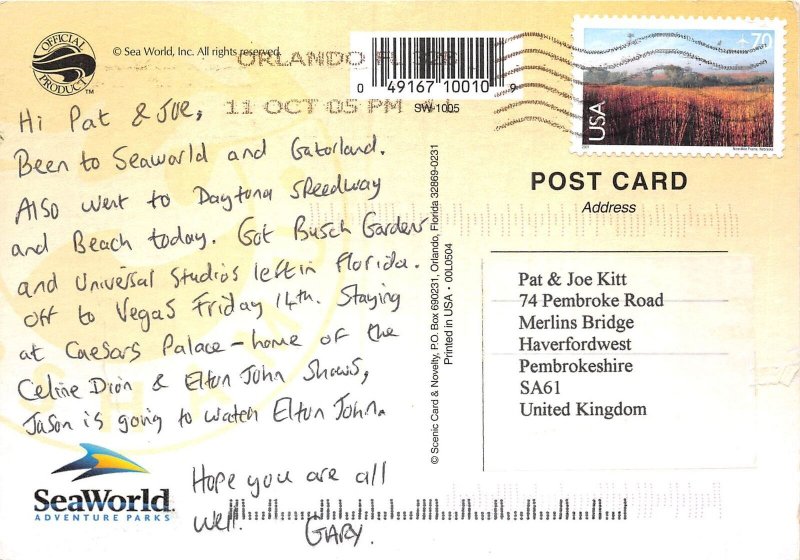 OFFICIAL
PRODUCT™
© Sea World, Inc. All rights reserved.
ORLANDO FL 328
11 OCT 05 PM
0 49167 10010 9
SW-1005
70
USA
POST CARD
Address
Hi Pat & Joe,
Been to Seaworld and Gatorland.
Also went to Daytona Speedway
and Beach today. Got Busch Gardens
and Universal Studios left in Florida.
Off to Vegas Friday 14th. Staying
at Caesars Palace - home of the
Celine Dion & Elton John Shows,
Jason is going to watch Elton John.
Hope you are all
well.
GARY.
© Scenic Card & Novelty, P.O. Box 690231, Orlando, Florida 32869-0231
Printed in USA • 00L0504
Pat & Joe Kitt
74 Pembroke Road
Merlins Bridge
Haverfordwest
Pembrokeshire
SA61
United Kingdom
SeaWorld
ADVENTURE PARKS